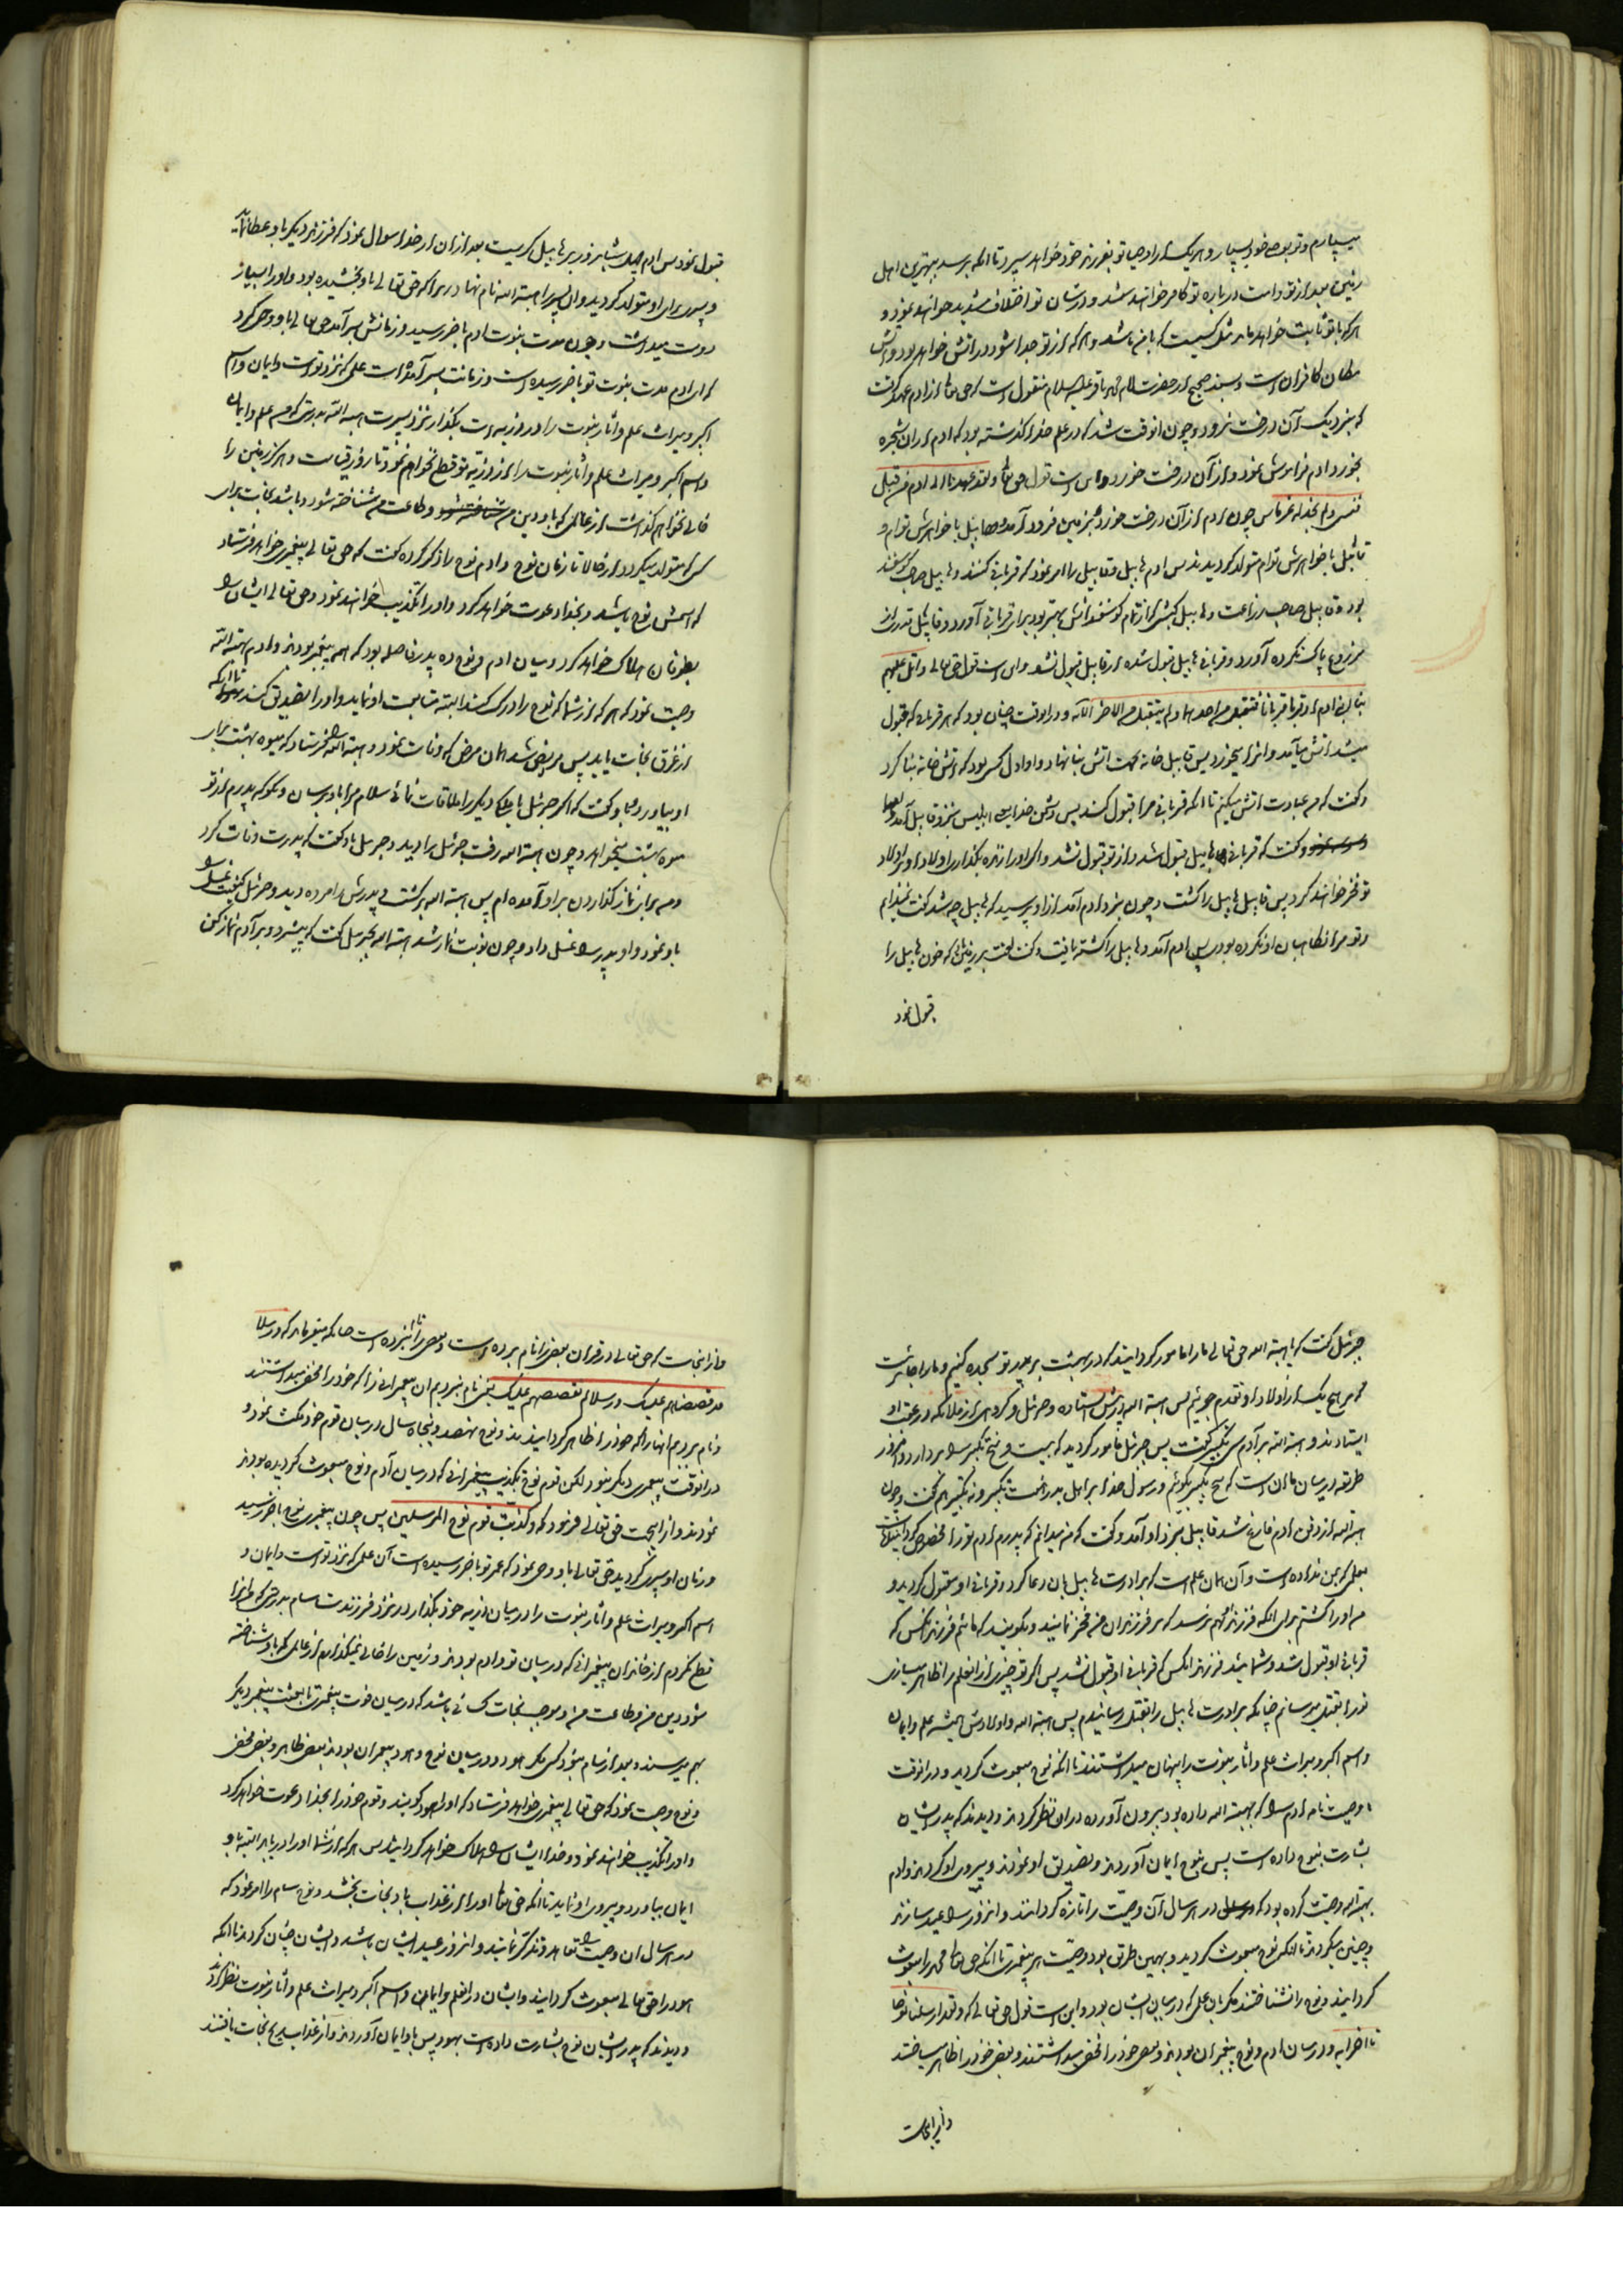 میسپارم و تو بوصی خود بسپار و هر یک از اوصیا تو بفرزند خود خواهد سپرد تا آنکه برسد ببهترین اهل
زمین بعد از تو و امت درباره تو کافر خواهند شد و در شان تو اختلاف شدید خواهند نمود و
هر که با تو ثابت خواهد ماند مثل کسیست که با من باشد و هر که از تو جدا شود در آتش خواهد بود و آتش
مکان کافران است و بسند صحیح از حضرت امام محمد باقر علیه السلام منقول است که حق تعالی از آدم عهد گرفت
که بنزدیک آن درخت نرود و چون آنوقت شد که در علم خدا گذشته بود که آدم از آن شجره
بخورد آدم فراموش نمود و از آن درخت خورد و این است قول حق تعالی و لقد عهدنا الی آدم من قبل
فنسی و لم نجد له عزما پس چون آدم از آن درخت خورد بزمین فرود آمد هابیل با خواهرش توام و
قابیل با خواهرش توام متولد گردیدند پس آدم هابیل و قابیل را امر نمود که قربانی کنند و هابیل صاحب گوسفند
بود و قابیل صاحب زراعت و هابیل کبشی که از تمام گوسفندانش بهتر بود برای قربانی آورد و قابیل قدری از
زرع پاک نکرده آورد و قربانی هابیل قبول شد و از قابیل قبول نشد و این است قول حق تعالی و اتل علیهم
نبا ابنی آدم اذ قربا قربانا فتقبل من احدهما و لم یتقبل من الاخر الآیه و در آنوقت چنان بود که هر قربانی که قبول
میشد آتش میآمد و آنرا میخورد پس قابیل خانه بجهت آتش بنا نهاد و او اول کسی بود که آتش خانه بنا کرد
و گفت که من عبادت آتش میکنم تا آنکه قربانی مرا قبول کند پس دشمن خدا ابلیس بنزد قابیل آمد
و گفت که قربانی هابیل قبول شد و از تو قبول نشد و اگر او را زنده بگذاری اولاد او بر اولاد
تو فخر خواهند کرد پس قابیل هابیل را کشت و چون بنزد آدم آمد از او پرسید که هابیل چه شد گفت نمیدانم
و تو مرا نگاهبان او نکرده بودی پس آدم آمد و هابیل را کشته یافت و گفت لعنت بر زمینی که خون هابیل را
قبول نمود
قبول نمود پس آدم چهل شبانه روز بر هابیل گریست بعد از آن از خدا سوال نمود که فرزند دیگر باو عطا نماید
و پسری برای او متولد گردید و آن پسر را هبة الله نام نهاد زیرا که حق تعالی باو بخشیده بود و او را بسیار
دوست میداشت و چون مدت نبوت آدم بآخر رسید و زمانش بسر آمد حق تعالی باو وحی کرد
که ای آدم مدت نبوت تو بآخر رسیده است و زمانت بسر آمده است علمی که نزد تو است و ایمان و اسم
اکبر و میراث علم و آثار نبوت را در ذریه ات بگذار نزد پسرت هبة الله بدرستی که من علم و ایمان
و اسم اکبر و میراث علم و آثار نبوت را از ذریه تو قطع نخواهم نمود تا روز قیامت و هرگز زمین را
خالی نخواهم گذاشت از عالمی که باو دین من و طاعت من شناخته شود و باشد نجات برای
کسی که متولد میگردد از حالا تا زمان نوح و آدم نوح را ذکر کرده گفت که حق تعالی پیغمبری خواهد فرستاد
که اسمش نوح باشد و بخدا دعوت خواهد کرد و او را تکذیب خواهند نمود و حق تعالی ایشان را
بطوفان هلاک خواهد کرد و میان آدم و نوح ده پدر فاصله بود که همه پیغمبر بودند و آدم هبة الله
وصیت نمود که هر که از شما که نوح را درک کند البته متابعت او نماید و او را تصدیق کند تا آنکه
از غرق نجات یابد پس مریض شد آدم بآن مرض که وفات نمود و هبة الله را فرستاد که میوه بهشت برای
او بیاورد و باو گفت که اگر جبرئیل یا ملک دیگر را ملاقات نمائی سلام مرا باو برسان و بگو که پدرم از تو
میوه بهشت میخواهد و چون هبة الله رفت جبرئیل را دید و جبرئیل باو گفت که پدرت وفات کرد
و من برای نماز گذاردن بر او آمده ام پس هبة الله برگشت و پدرش را مرده دید و جبرئیل کیفیت غسل را
باو نمود و او پدر را غسل داد و چون نوبت نماز شد هبة الله بجبرئیل گفت که پیشرو و بر آدم نماز کن
جبرئیل گفت که یا هبة الله حق تعالی ما را مامور گردانید که در بهشت بر پدر تو سجده کنیم و ما را جائز نیست
که بر هیچ یک از اولاد او تقدم جوئیم پس هبة الله پیش ایستاده و جبرئیل و گروهی از ملائکه در عقب او
ایستادند و هبة الله بر آدم سی تکبیر گفت پس جبرئیل مامور گردید که بیست و پنج تکبیر را بردارد و امروز
طریقه در میان ما آن است که پنج تکبیر بگوئیم و رسول خدا بر اهل بدر هفت تکبیر و نه تکبیر هم گفت و چون
هبة الله از دفن آدم فارغ شد قابیل بنزد او آمد و گفت که من میدانم که پدرم آدم تو را مخصوص گردانیده است
بعلمی که بمن نداده است و آن همان علم است که برادرت هابیل بآن دعا کرد و قربانی او مقبول گردید و
من او را کشتم برای آنکه فرزندی بهم نرسد که بر فرزندان من فخر نمایند و بگویند که مائیم فرزند آنکس که
قربانی او قبول شد و شمائید فرزند آنکس که قربانی او قبول نشد پس اگر تو چیزی از آن علم را ظاهر سازی
تو را بقتل میرسانم چنانکه برادرت هابیل را بقتل رسانیدم پس هبة الله و اولادش همیشه علم و ایمان
و اسم اکبر و میراث علم و آثار نبوت را پنهان میداشتند تا آنکه نوح مبعوث گردید و در آنوقت
وصیت نامه آدم را که بهبة الله داده بود بیرون آورده در آن نظر کردند و دیدند که پدر ایشان
بشارت بنوح داده است پس بنوح ایمان آوردند و تصدیق او نمودند و پیروی او کردند و آدم
بهبة الله وصیت کرده بود که در هر سال آن وصیت را تازه گردانند و آنروز را عید سازند
و چنین میکردند تا آنکه نوح مبعوث گردید و بهمین طریق بود وصیت هر پیغمبری تا آنکه حق تعالی محمد را مبعوث
گردانید و نوح را نشناختند مگر بآن علمی که در میان ایشان بود و این است قول حق تعالی که و لقد ارسلنا نوحا
تا آخر آیه و در میان آدم و نوح پیغمبران بودند و بعضی خود را مخفی میداشتند و بعضی خود را ظاهر میساختند
و از اینجاست
و از اینجاست که حق تعالی در قرآن بعضی را نام برده است و بعضی را نام نبرده است چنانکه میفرماید که و رسلا
قد قصصناهم علیک و رسلا لم نقصصهم علیک یعنی نام نبردیم آن پیغمبرانی را که خود را مخفی میداشتند
و نام بردیم آنها را که خود را ظاهر گردانیدند و نوح نهصد و پنجاه سال در میان قوم خود مکث نمود و
در آنوقت پیغمبری دیگر نبود و لکن قوم نوح تکذیب پیغمبرانی که در میان آدم و نوح مبعوث گردیده بودند
نمودند و از اینجهت حق تعالی فرمود که و کذبت قوم نوح المرسلین پس چون پیغمبری نوح بآخر رسید
و زمان او سپری گردید حق تعالی باو وحی نمود که عمر تو بآخر رسیده است آن علمی که نزد تو است و ایمان و
اسم اکبر و میراث علم و آثار نبوت را در میان ذریه خود بگذار در نزد فرزندت سام بدرستی که من اینها را
قطع نکردم از خاندان پیغمبرانی که در میان تو و آدم بودند و زمین را خالی نمیگذارم از عالمی که باو شناخته
شود دین من و طاعت من و موجب نجات کسانی باشد که در میان فوت پیغمبری تا بعثت پیغمبر دیگر
بهم میرسند و بعد از سام نبود کسی مگر هود و در میان نوح و هود پیغمبران بودند بعضی ظاهر و بعضی مخفی
و نوح وصیت نمود که حق تعالی پیغمبری خواهد فرستاد که او را هود گویند و قوم خود را بخدا دعوت خواهد کرد
و او را تکذیب خواهند نمود و خدا ایشان را هلاک خواهد گردانید پس هر که از شما او را دریابد البته باو
ایمان بیاورد و پیروی او نماید تا آنکه حق تعالی او را از عذاب باد نجات بخشد و نوح سام را امر نمود که
در هر سال آن وصیت را تعاهد و تذکر نمایند و آنروز عید ایشان باشد و ایشان چنان کردند تا آنکه
هود را حق تعالی مبعوث گردانید و ایشان در آن علم و ایمان و اسم اکبر و میراث علم و آثار نبوت نظر کردند
و دیدند که پدر ایشان نوح بشارت داده است بهود پس باو ایمان آوردند و از عذاب ریح نجات یافتند